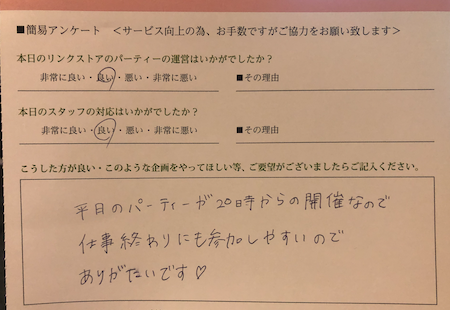 ■簡易アンケート　＜サービス向上の為、お手数ですがご協力をお願い致します＞
本日のリンクストアのパーティーの運営はいかがでしたか？
非常に良い・良い・悪い・非常に悪い　■その理由
本日のスタッフの対応はいかがでしたか？
非常に良い・良い・悪い・非常に悪い　■その理由
こうした方が良い・このような企画をやってほしい等、ご要望がございましたらご記入ください。
平日のパーティーが20時からの開催なので
仕事終わりにも参加しやすいので
ありがたいです♡